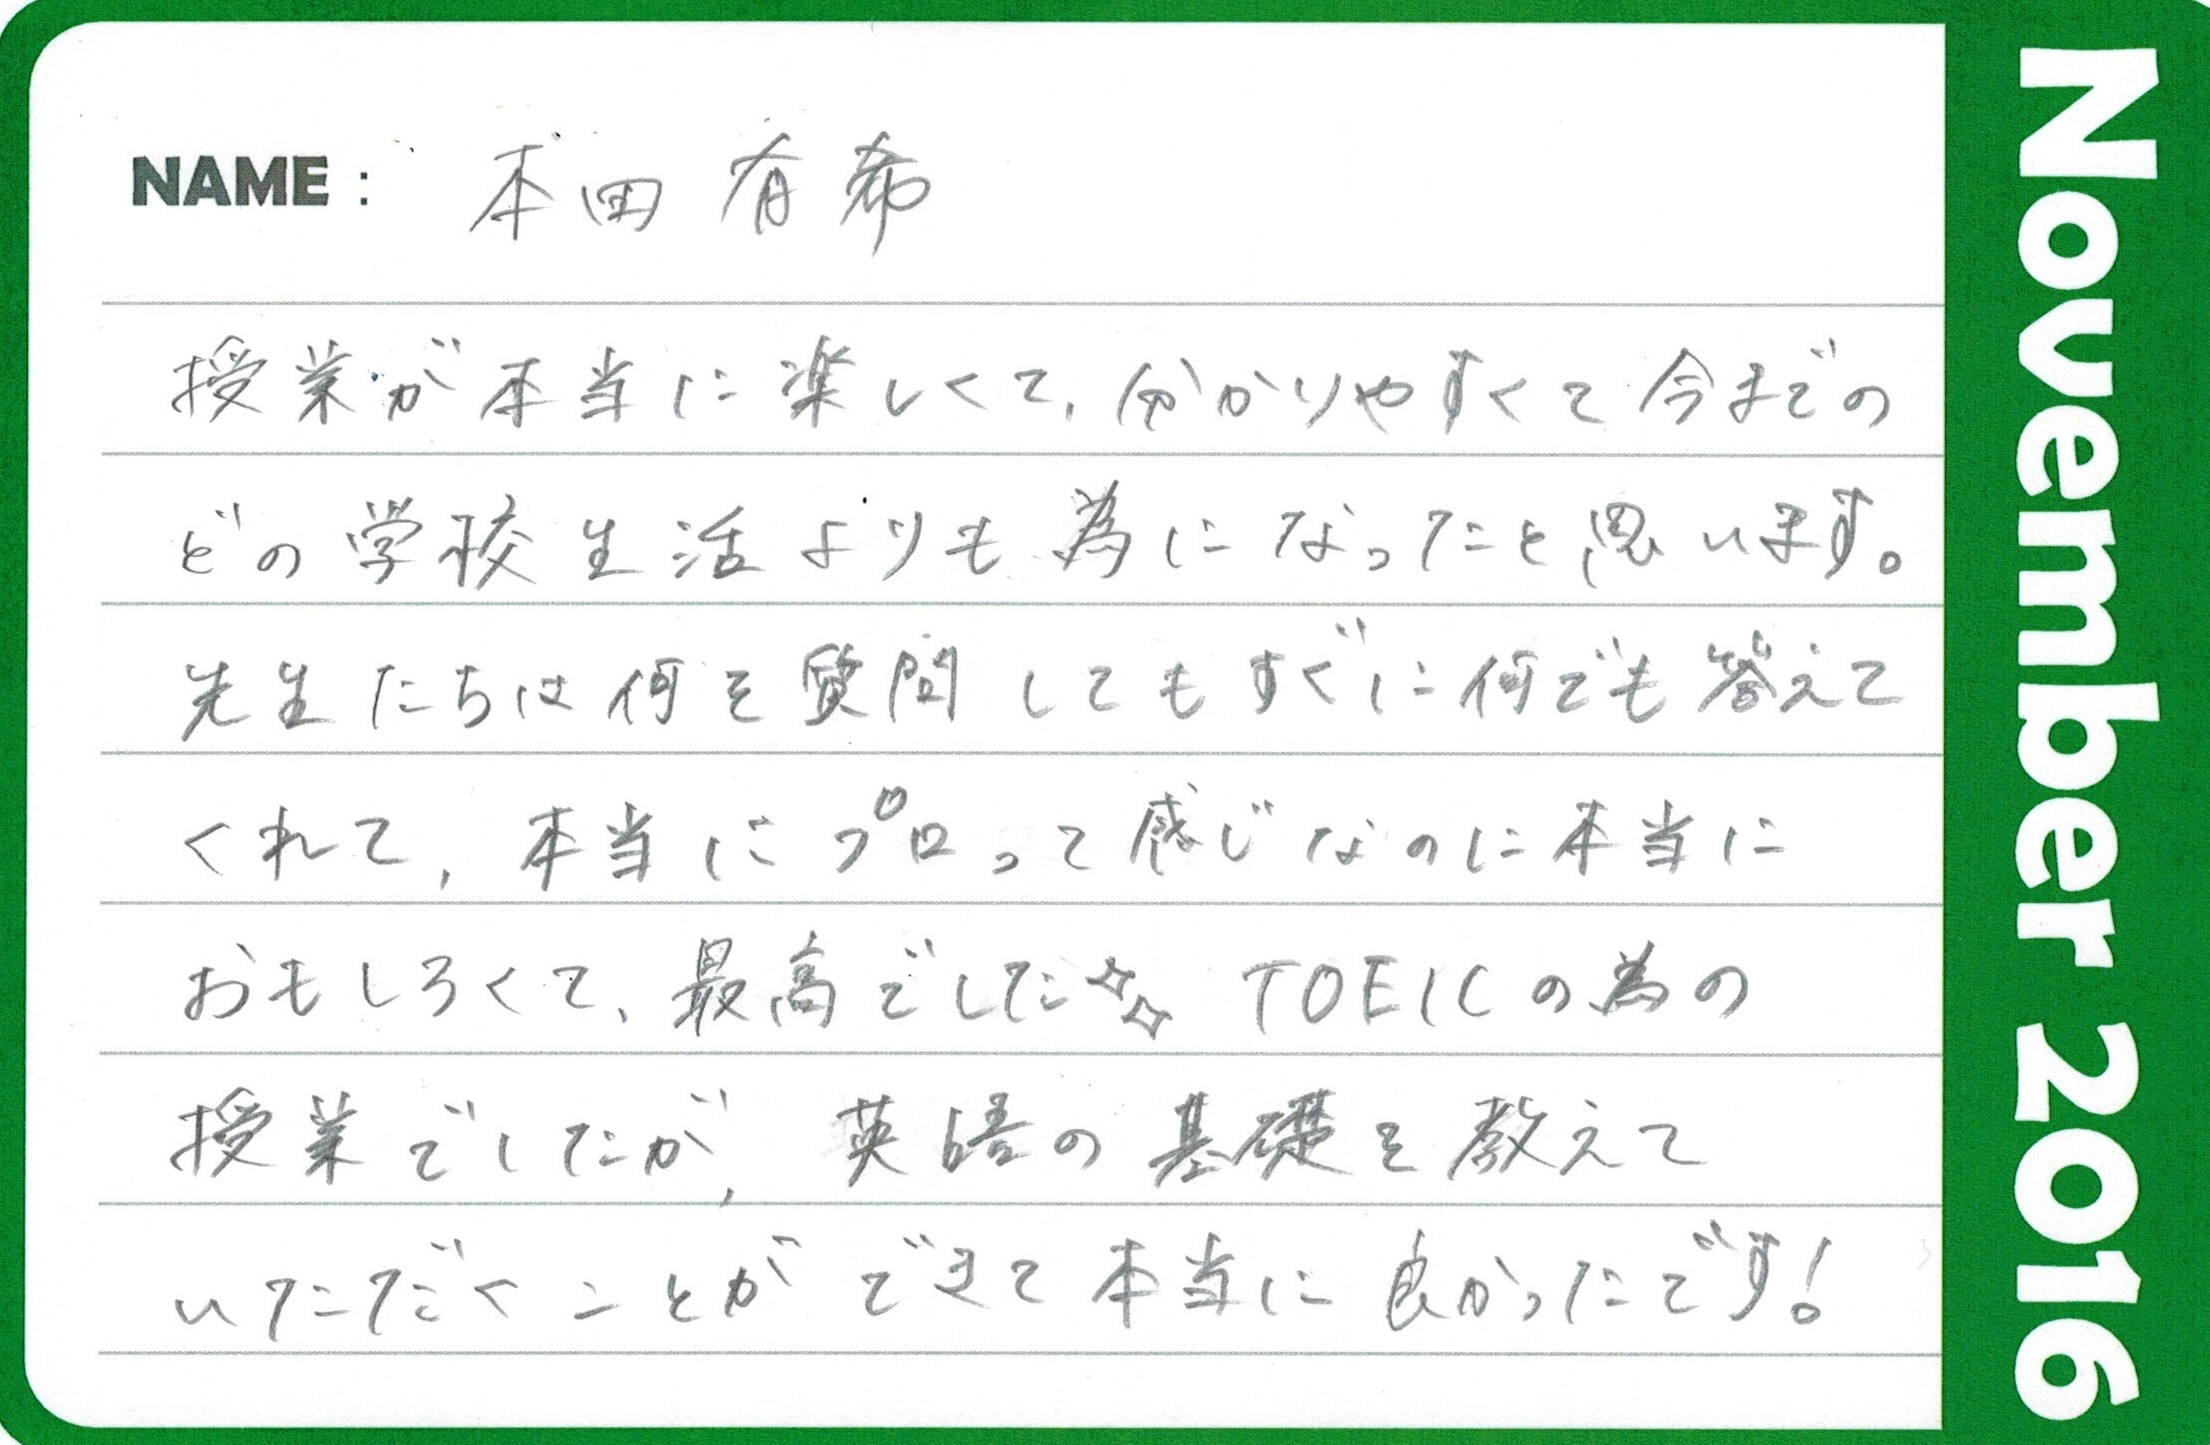 NAME : 本田 有希
授業が本当に楽しくて、分かりやすくて今までの
どの学校生活よりも為になったと思います。
先生たちは何を質問してもすぐに何でも答えて
くれて, 本当にプロって感じなのに本当に
おもしろくて、最高でした✧✧ TOEICの為の
授業でしたが, 英語の基礎を教えて
いただくことができて本当に良かったです!
November 2016